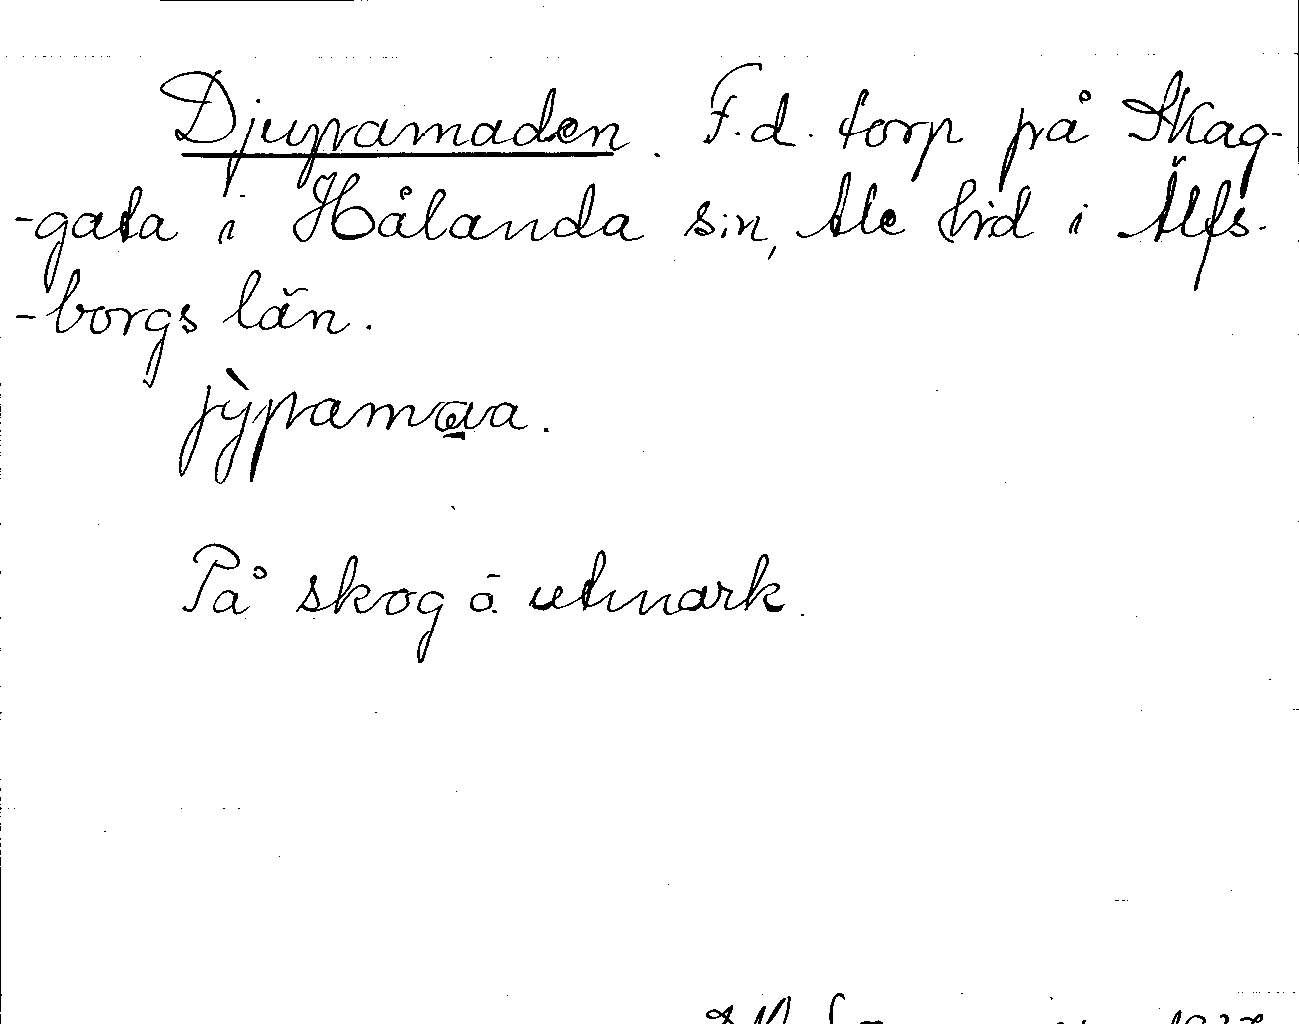 Djupamaden. F.d. torp på Skag-
-gata i Hålanda s:n, Ale hrd i Älfs-
-borgs län.
På skog å utmark.